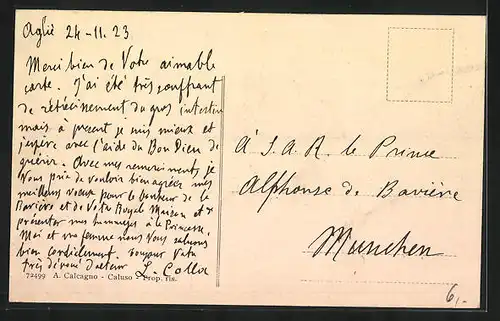 Agliè 24-11. 23
Merci bien de Votre aimable
carte. J'ai été très souffrant
de rétrécissement du gros intestin
mais à present je suis mieux et
j'espère avec l'aide du Bon Dieu de
guérir. Avec mes remerciments je
Vous prie de vouloir bien agréer mes
meilleurs voeux pour le bonheur de la
Bavière et de Votre Royal Maison et de
présenter mes hommages à la Princesse.
Moi et ma femme nous Vous saluons
bien cordialement. toujours Votre
très dévoué
L. Colla
72499 A. Calcagno - Caluso - Prop. ris.
À S. A. R. le Prince
Alphonse de Bavière
München
6,-